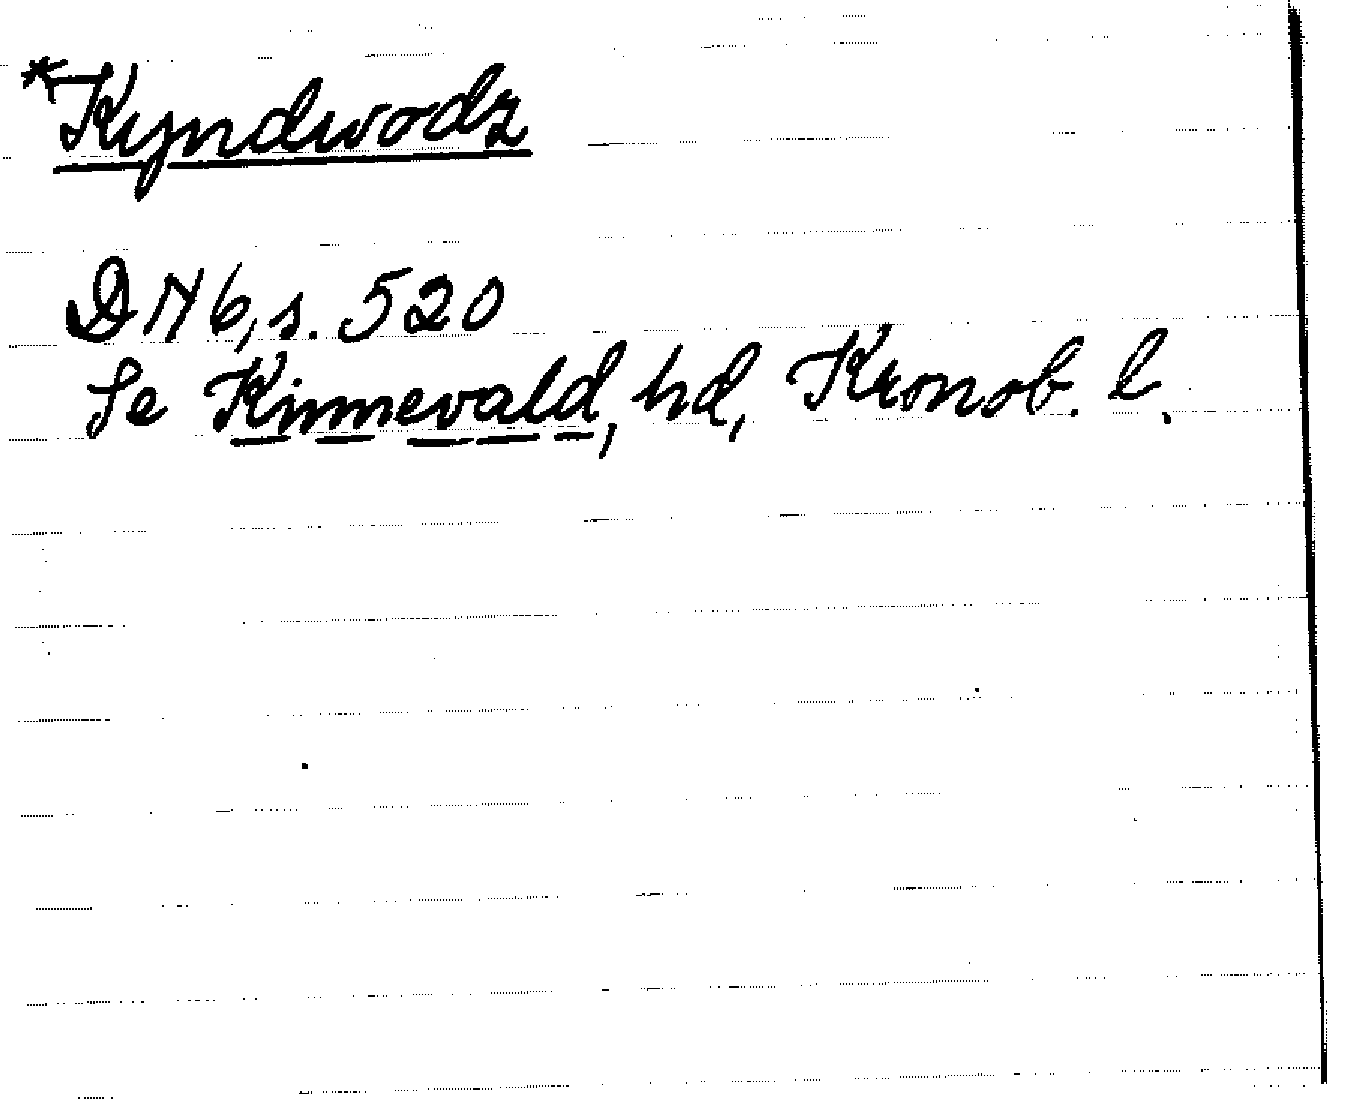 *Kyndwodz
DN 6, s. 520
Se Kinnevald, hd, Kronob. l.